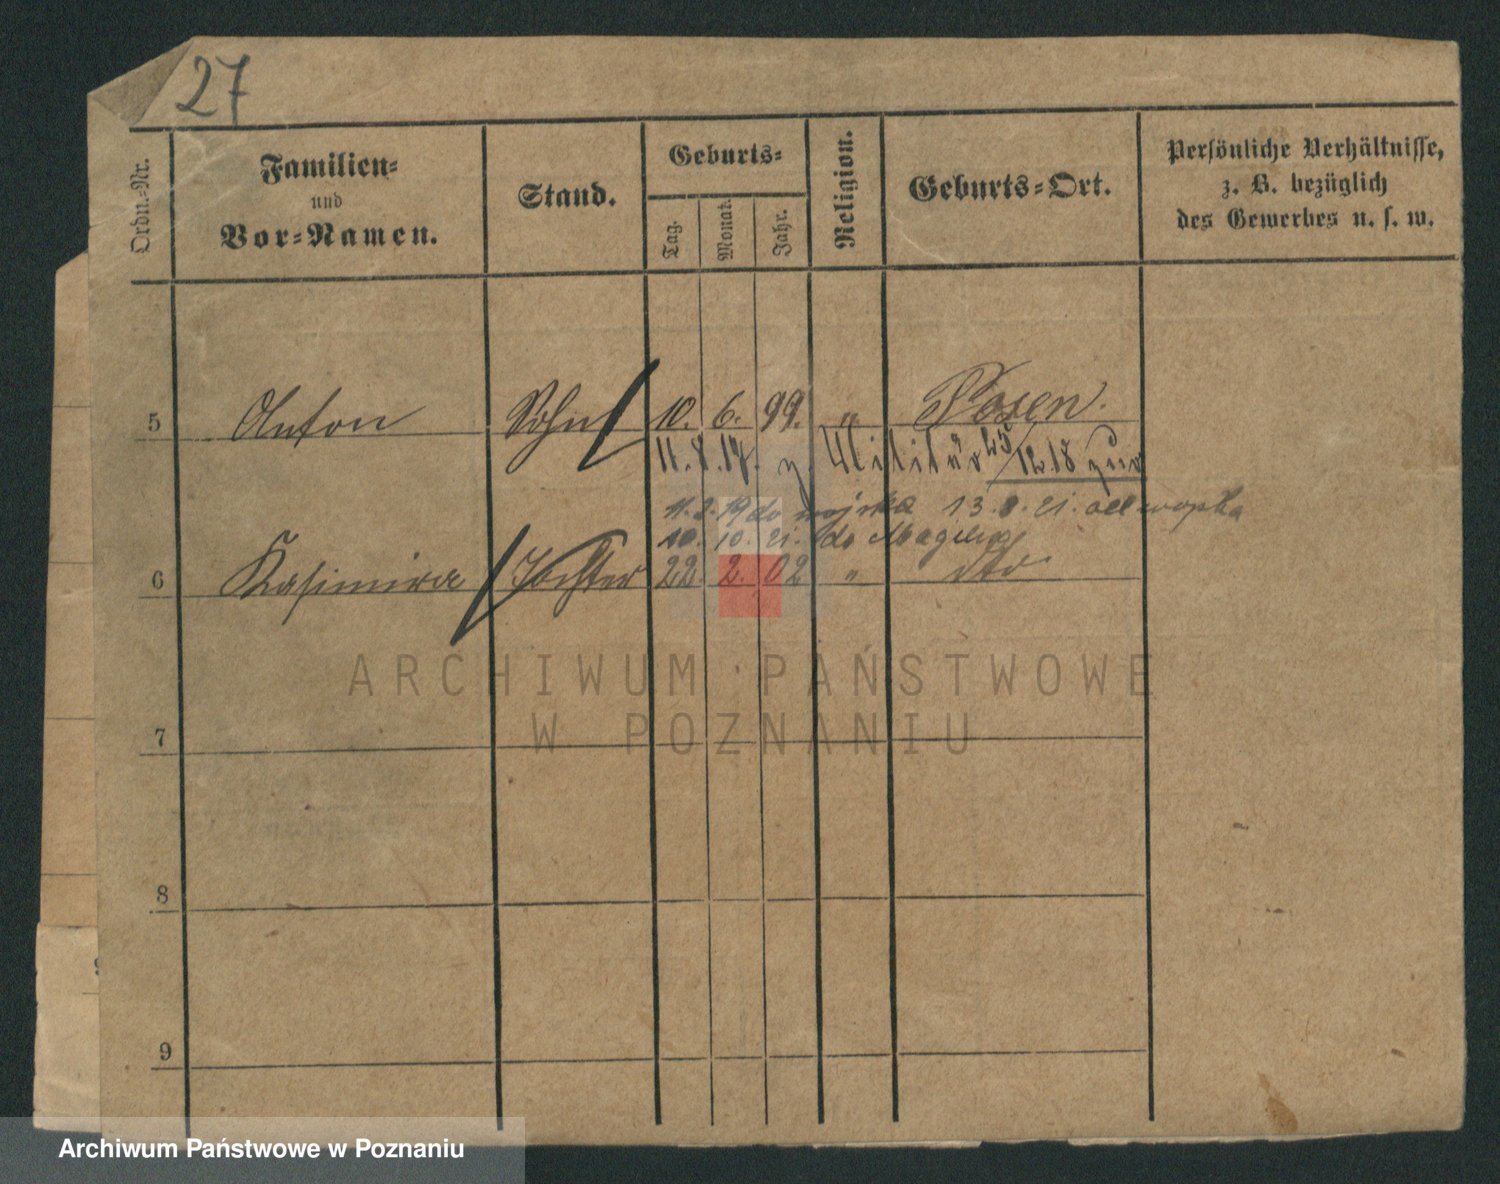 27
Ordn.-Nr.
Familien-
und
Vor-Namen.
Stand.
Geburts-
Tag.
Monat.
Jahr.
Religion.
Geburts-Ort.
Persönliche Verhältnisse,
z. B. bezüglich
des Gewerbes u. s. w.
5 Anton Sohn 10. 6. 99. " Posen.
11. 7. 17. z. Militär 25/12.18 zur
11. 2. 19 do wojska 13. 8. 21. od wojska
10. 10. 21. do
6 Kasimira Tochter 22. 2. 02 " dto
ARCHIWUM PAŃSTWOWE
W POZNANIU
7
8
9
Archiwum Państwowe w Poznaniu